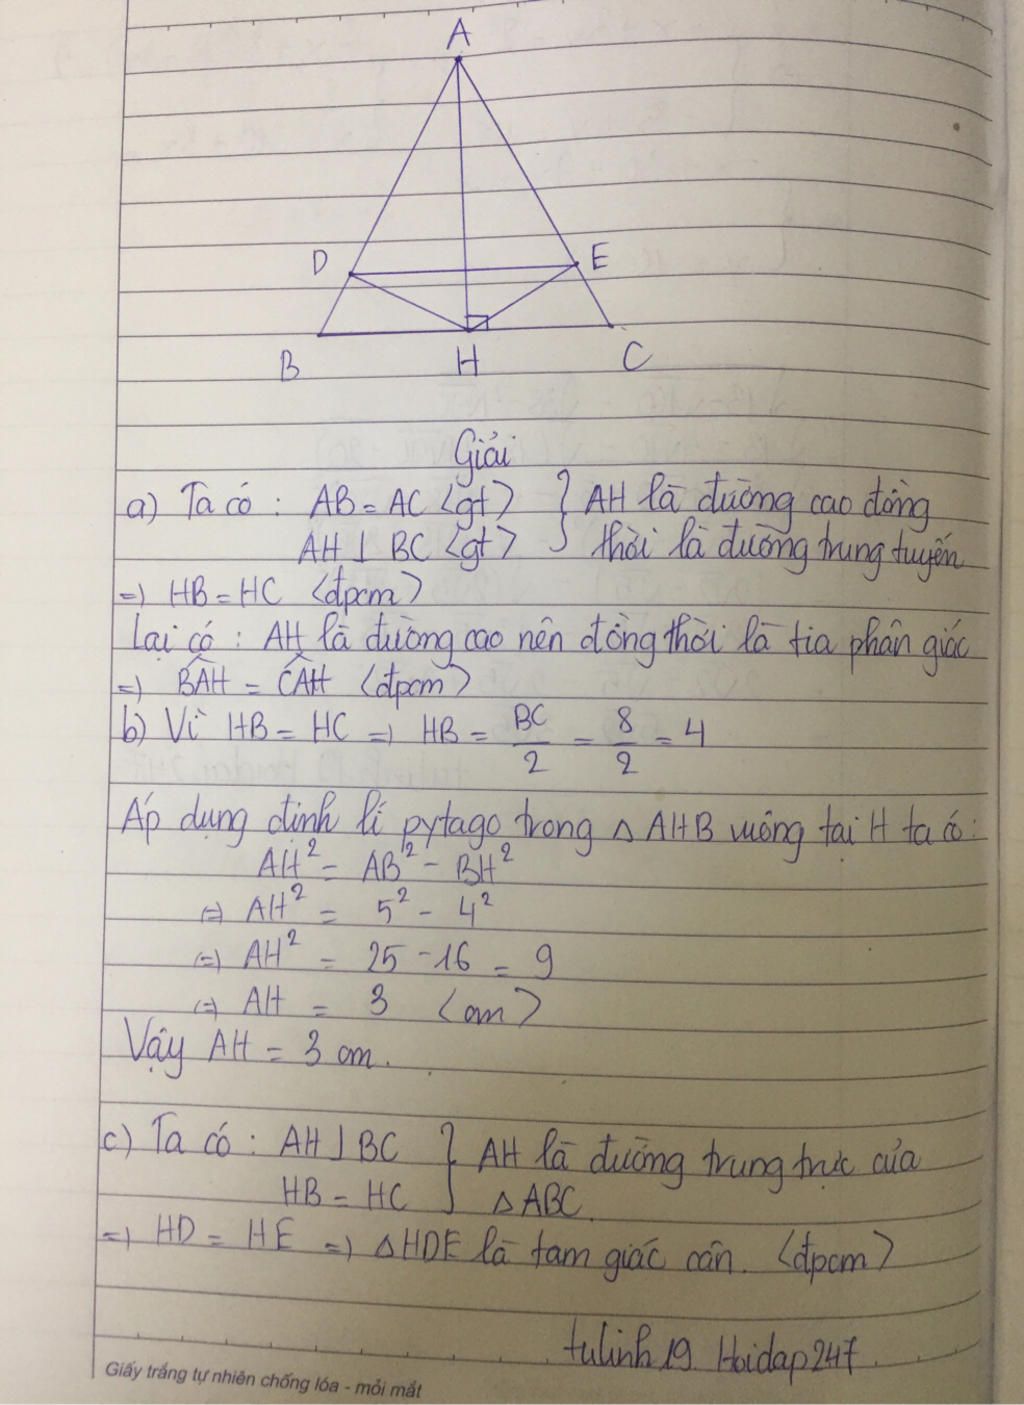 A
D
E
B
H
C
Giải
a) Ta có : AB = AC (gt) } AH là đường cao đồng
AH ⊥ BC (gt) } thời là đường trung tuyến
=) HB = HC (đpcm)
Lại có : AH là đường cao nên đồng thời là tia phân giác
=) B̂AH = ĈAH (đpcm)
b) Vì HB = HC =) HB = BC/2 = 8/2 = 4
Áp dụng định lí pytago trong △ AHB vuông tại H ta có:
AH² = AB² - BH²
(=) AH² = 5² - 4²
(=) AH² = 25 - 16 = 9
(=) AH = 3 (cm)
Vậy AH = 3 cm.
c) Ta có : AH ⊥ BC } AH là đường trung trực của
HB = HC } △ ABC.
=) HD = HE =) △ HDE là tam giác cân. (đpcm)
tulinh19. Hoidap247.
Giấy trắng tự nhiên chống lóa - mỏi mắt